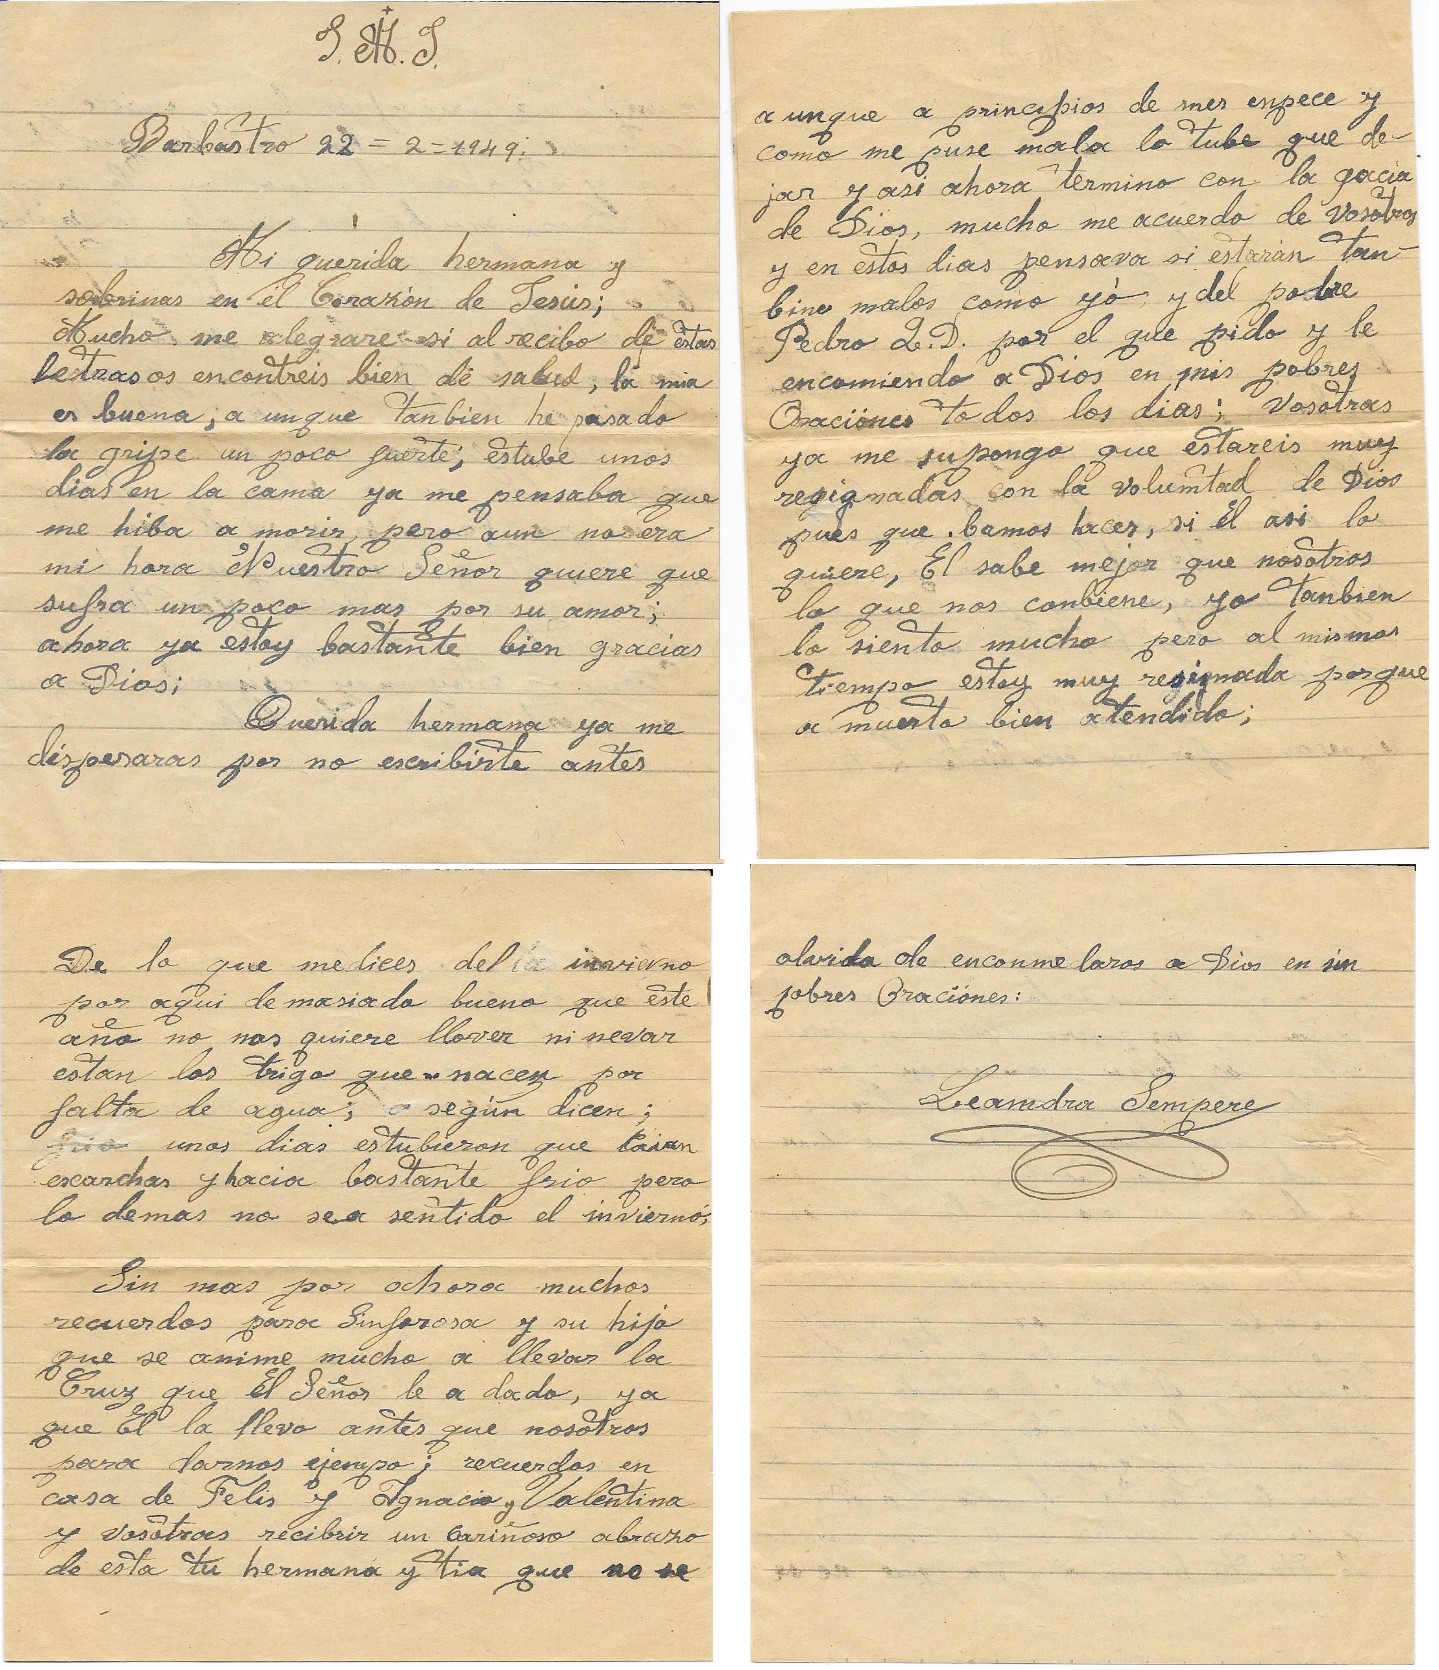 J. M. J.
Barbastro 22 = 2 = 1949;
Mi querida hermana y
sobrinas en él Corazón de Jesús;
Mucho me alegrare si al recibo de éstas
letras os encontreis bien de salud, la mia
es buena, a unque tanbien he pasado
la gripe un poco fuerte; éstube unos
dias en la cama ya me pensaba que
me hiba a morir, pero aun no era
mi hora Nuestro Señor quiere que
sufra un poco mas por su amor;
ahora ya estoy bastante bien gracias
a Dios;
Querida hermana ya me
dispesaras por no escribirte antes
a unque a principios de mes enpece y
como me puse mala lo tube que de-
jar y asi ahora termino con la gacia
de Dios, mucho me acuerdo de vosotros
y en estos dias pensava si estarán tan-
bine malos como yó y del pobre
Pedro Q.D. por el que pido y le
encomiendo a Dios en mis pobres
Oraciónes todos los dias; Vosotras
ya me supongo que estareis muy
resignadas con la volumtad de Dios
pues que bamos hacer, si Él asi lo
quiere, Él sabe mejor que nosotros
lo que nos conbiene, yo tanbien
lo siento mucho pero al mismos
tiempo estoy muy resignada porque
a muerto bien atendido;
De lo que medices del invierno
por aqui demasiado bueno que este
año no nos quiere llover ni nevar
estan los trigo que nacen por
falta de agua; según dicen;
frio unos dias estubieron que caian
escarchas y hacia bastante frio pero
lo demas no sea sentido el invierno;
Sin mas por ahora muchos
recuerdos para Sinforosa y su hijo
que se anime mucho a llevar la
Cruz que Él Señor le a dado, ya
que Él la llevo antes que nosotros
para darnos ejempo; recuerdos en
casa de Felis y Ignacio y Valentina
y vosotras recibrir un cariñoso abrazo
de esta tu hermana y tia que no se
olvida de enconmelaros a Dios en sin
pobres Oraciónes:
Leamdra Sempere